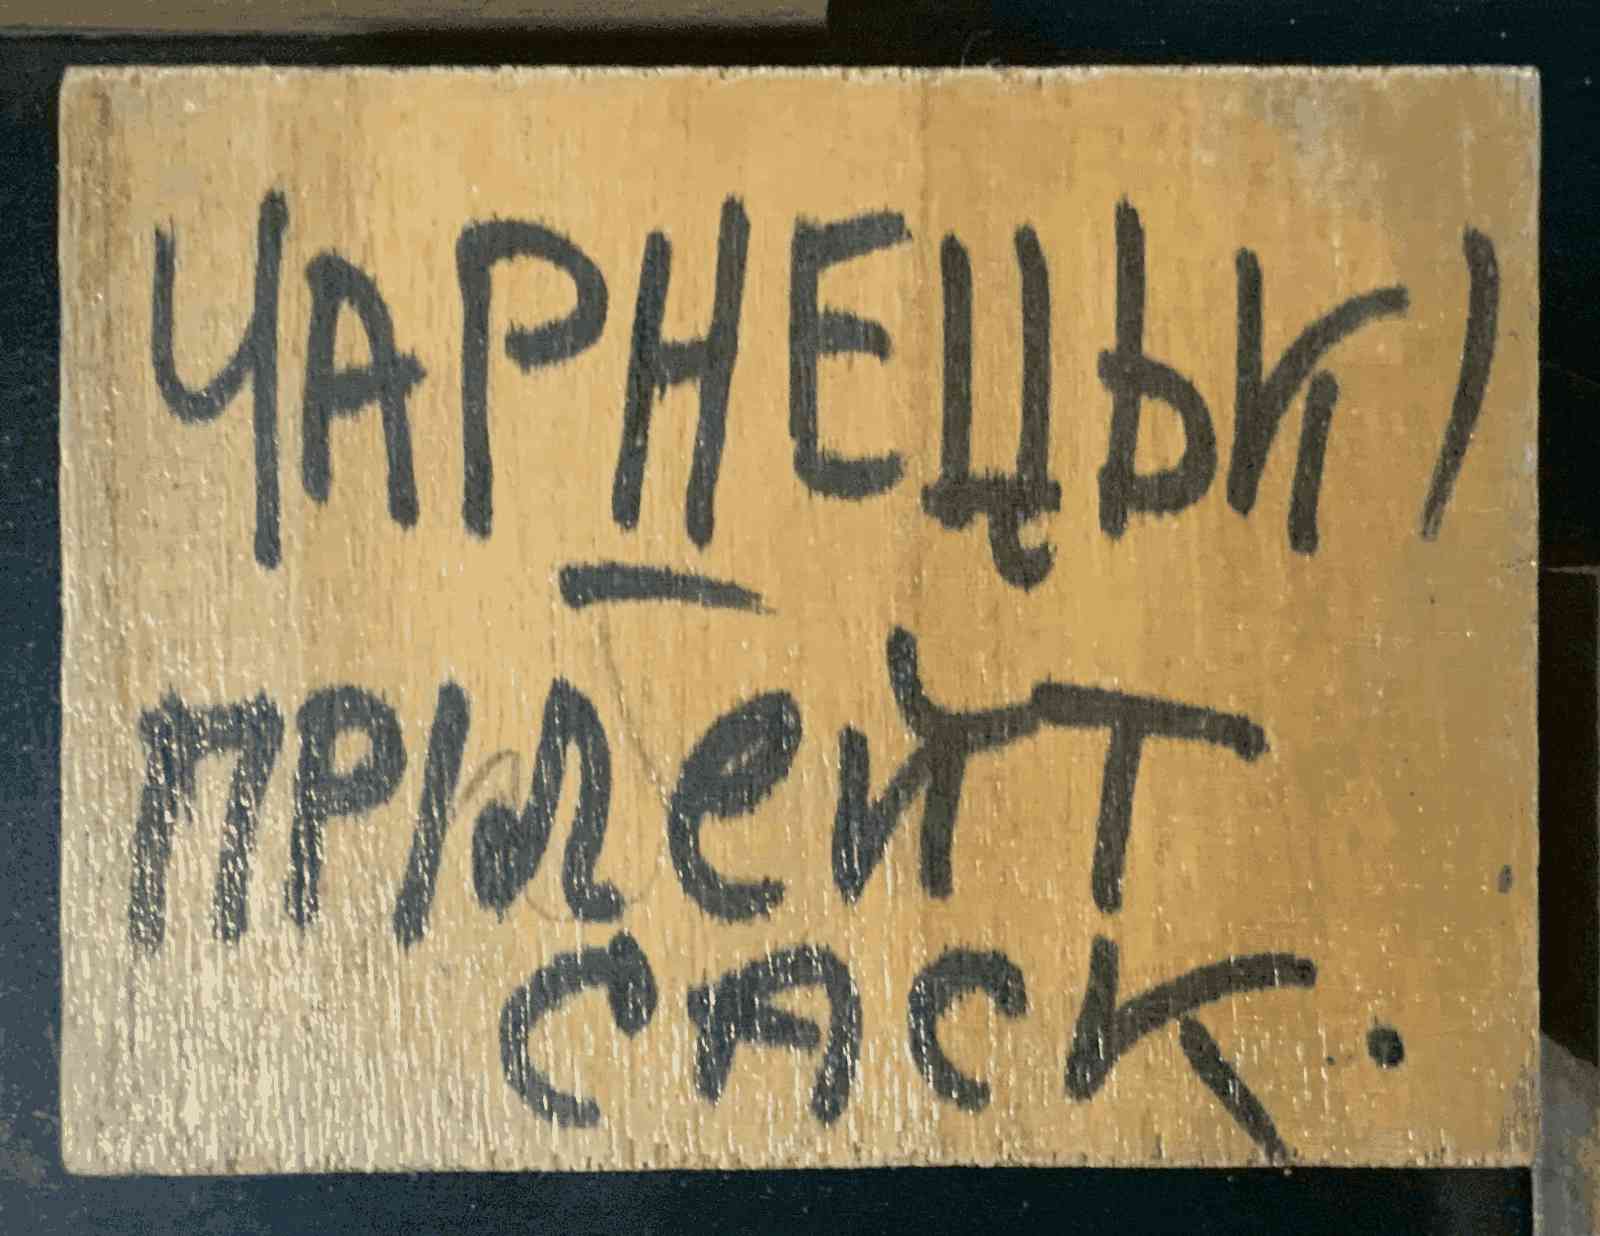 ЧАРНЕЦЬКІ
—
ПРІЛЕЙТ
САСК.